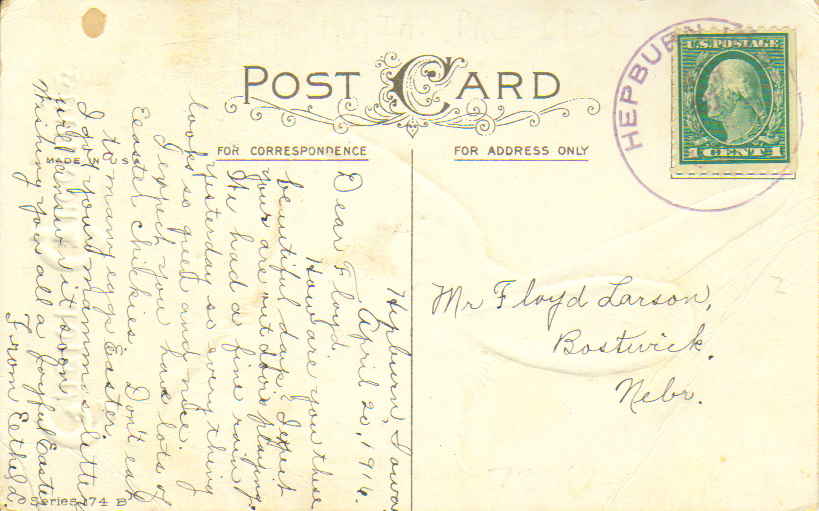 POST CARD
HEPBURN
U.S. POSTAGE
1 CENT 1
MADE IN U.S.A.
FOR CORRESPONDENCE
FOR ADDRESS ONLY
Hepburn, Iowa
April 20, 1916.
Dear Floyd.
How are you these
beautiful days. I expect
your are out doors playing.
We had a fine rain
yesterday so everything
looks so and nice.
I expect you have lots of
Easter chickies. Don't eat
to many eggs Easter.
I got your mammas letter
will answer it soon.
Wishing you all a Joyful Easter
From
Mr Floyd Larson,
Bostwick.
Nebr.
Series 174 B